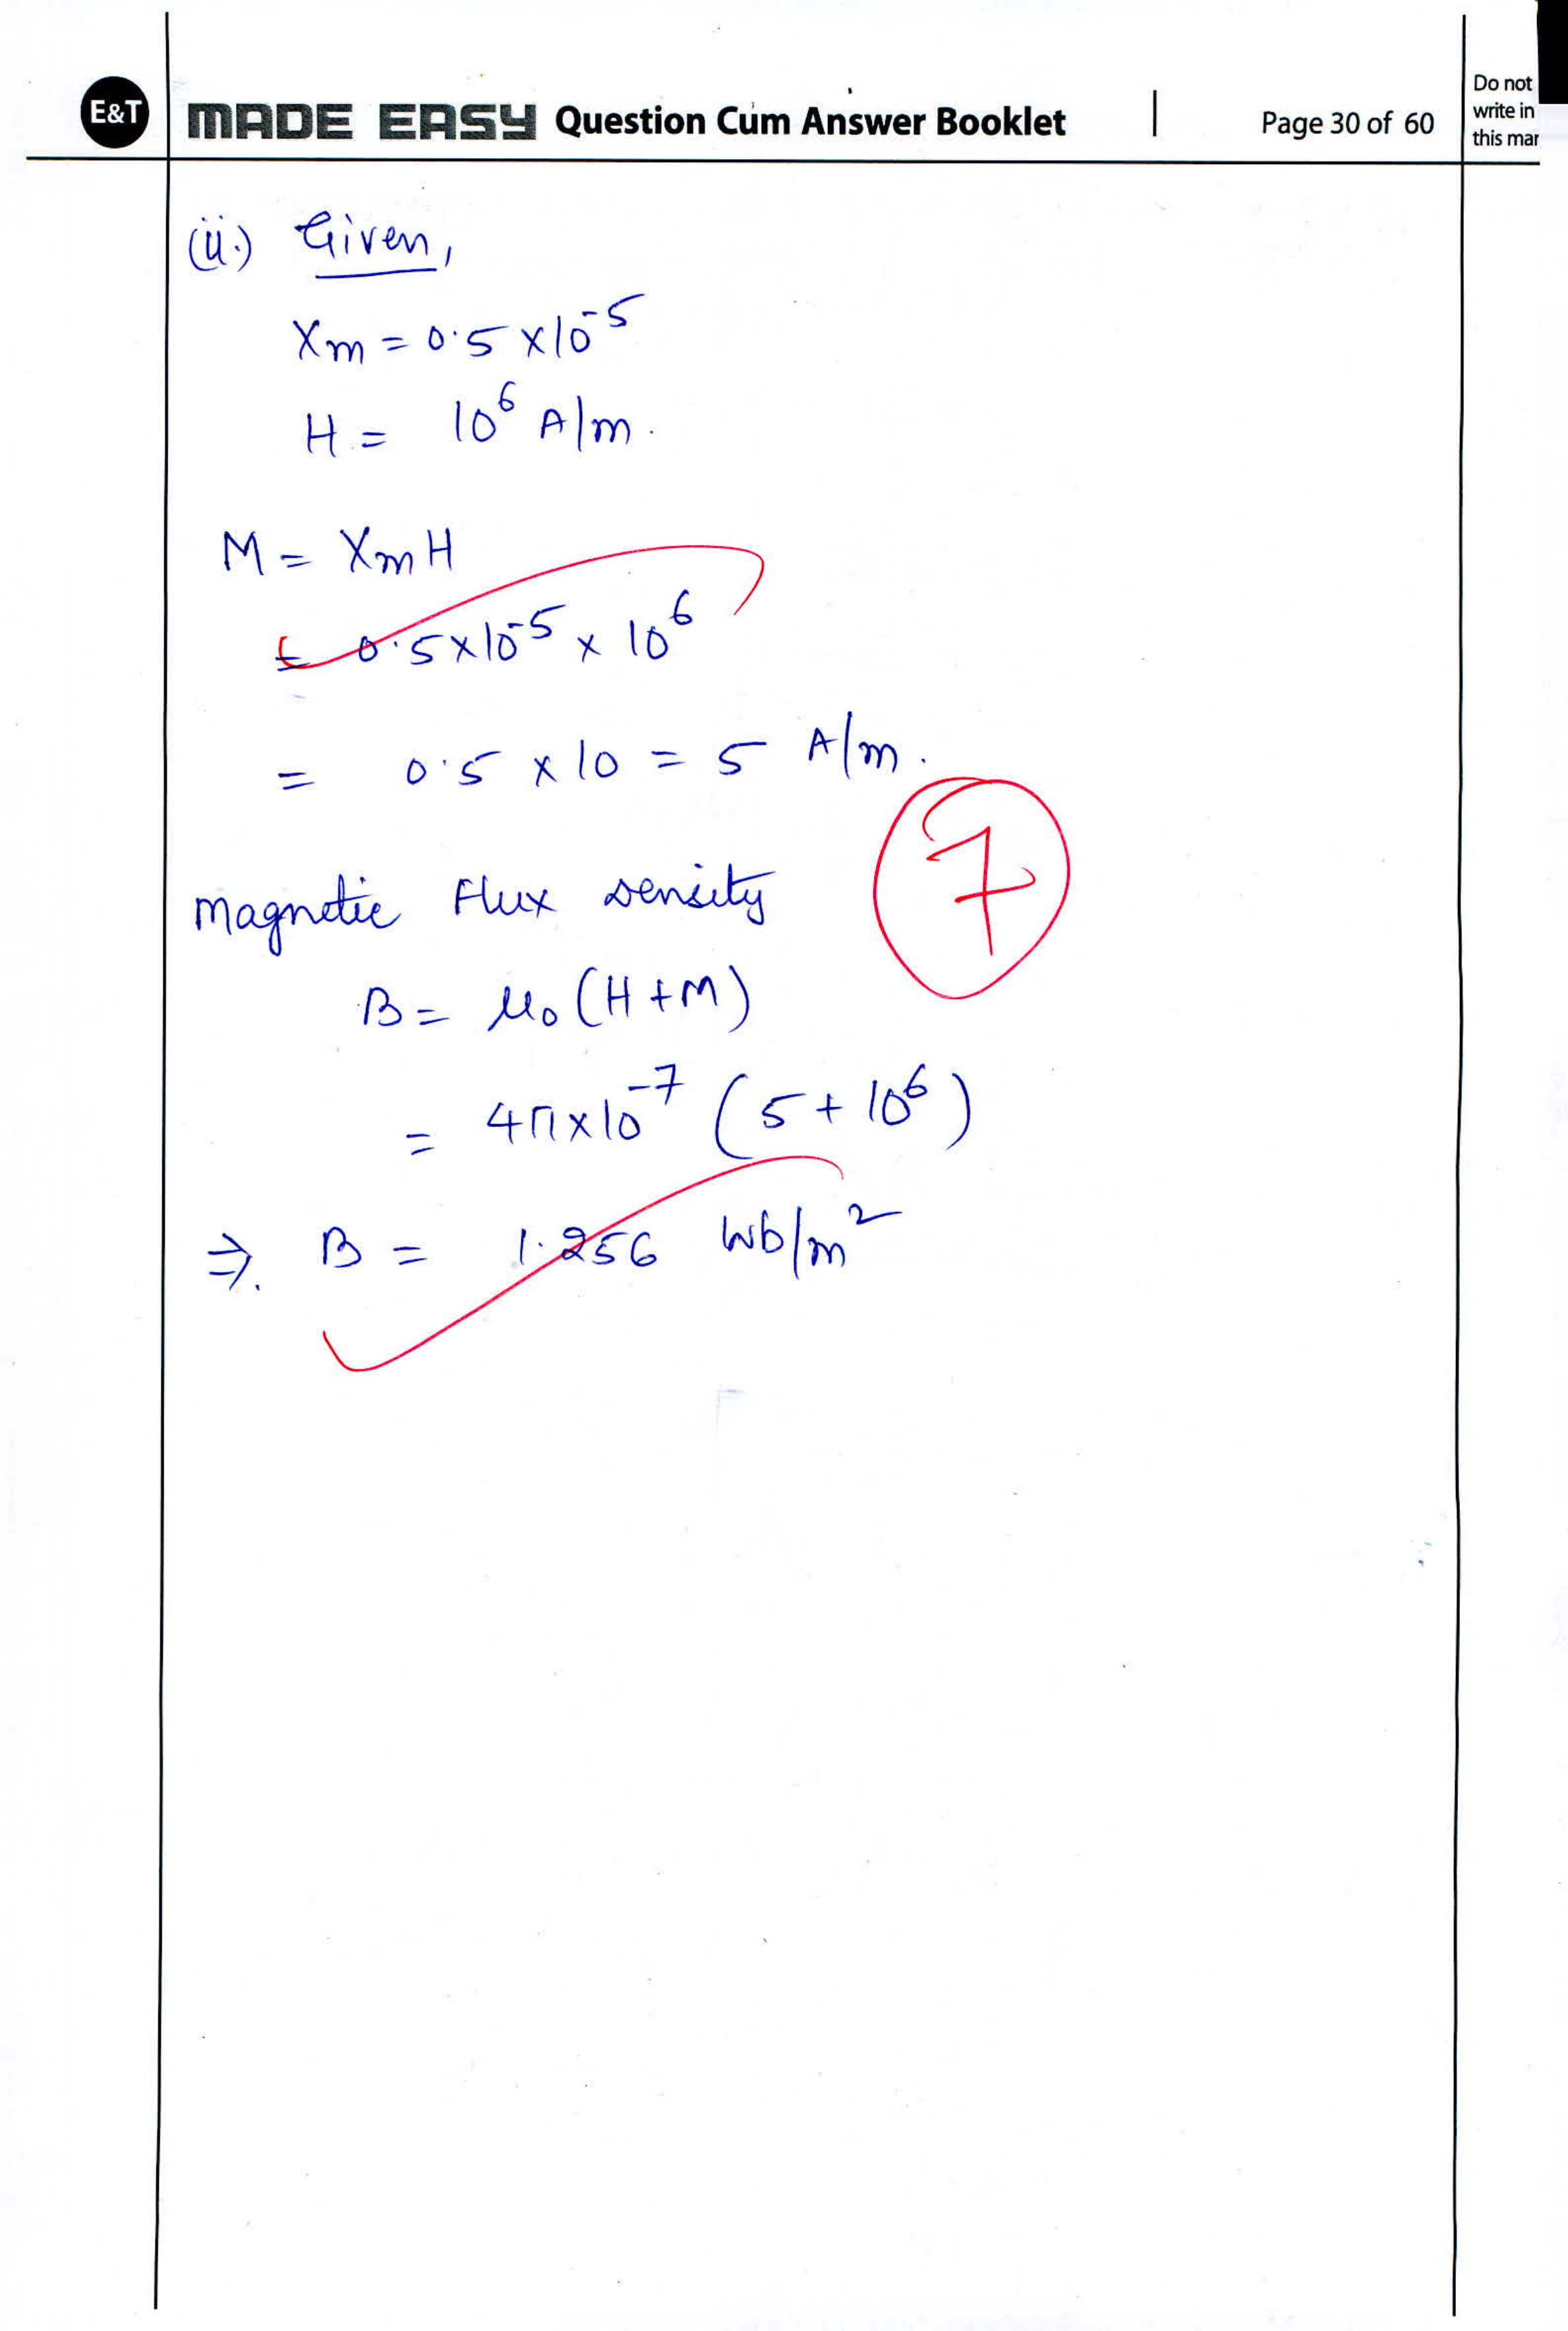 E&T MADE EASY Question Cum Answer Booklet | Page 30 of 60
Do not
write in
this mar
(ii.) Given,
Xm = 0.5 x10^-5
H = 10^6 A/m.
M = Xm H
= 0.5x10^-5 x 10^6
= 0.5 x 10 = 5 A/m.
7
Magnetic Flux Density
B = μ0 (H+M)
= 4π x10^-7 (5 + 10^6)
⇒. B = 1.256 Wb/m^2